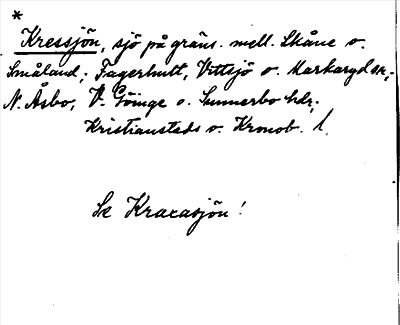 *
Kressjön, sjö på gräns. mell. Skåne o.
Småland; Fagerhult, Vittsjö o. Markaryd sn;
N. Åsbo, V. Göinge o. Sunnerbo hdr;
Kristianstads o. Kronob. l.
Se Kraxasjön!